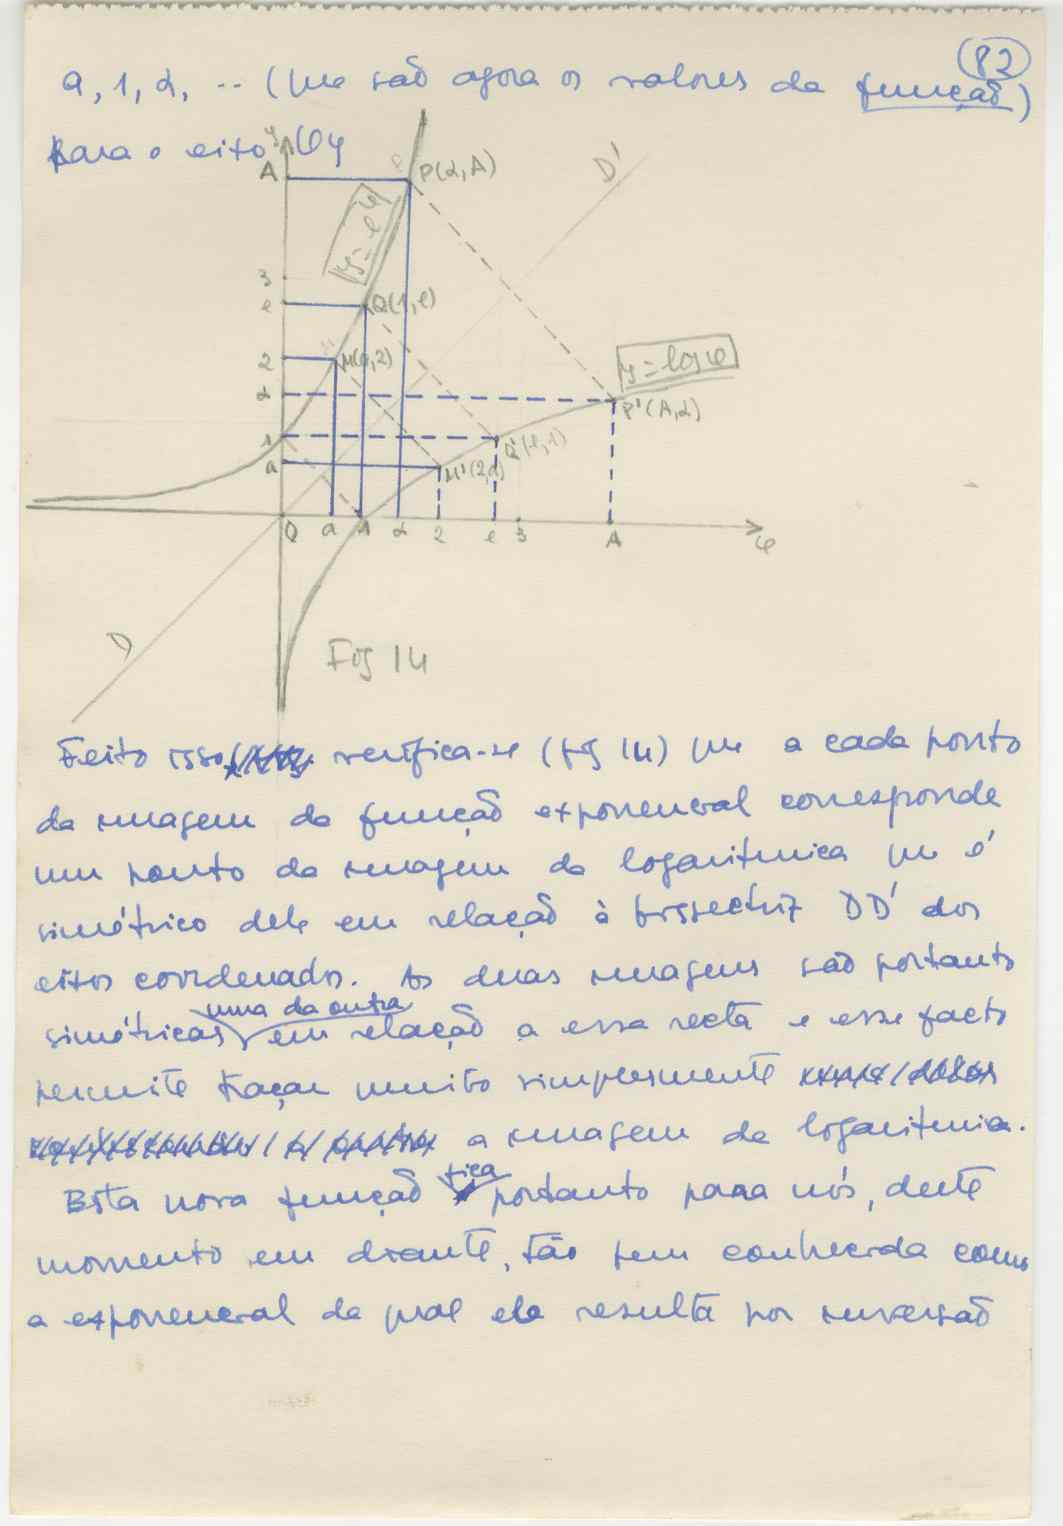 82
a, 1, α, ... (que são agora os valores da função)
para o eixo Oy
y
A
P(α, A)
D'
y = e^x
3
e
Q(1, e)
2
M(a, 2)
y = log x
α
P'(A, α)
1
Q'(e, 1)
a
M'(2, a)
O a 1 α 2 e 3 A x
D
Fig 14
Feito isso, verifica-se (fig 14) que a cada ponto
da imagem da função exponencial corresponde
um ponto da imagem da logarítmica que é
simétrico dele em relação à bissectriz DD' dos
eixos coordenados. As duas imagens são portanto
simétricas uma da outra em relação a essa recta e esse facto
permite traçar muito simplesmente
a imagem da logarítmica.
Esta nova função fica portanto para nós, deste
momento em diante, tão bem conhecida como
a exponencial da qual ela resulta por inversão